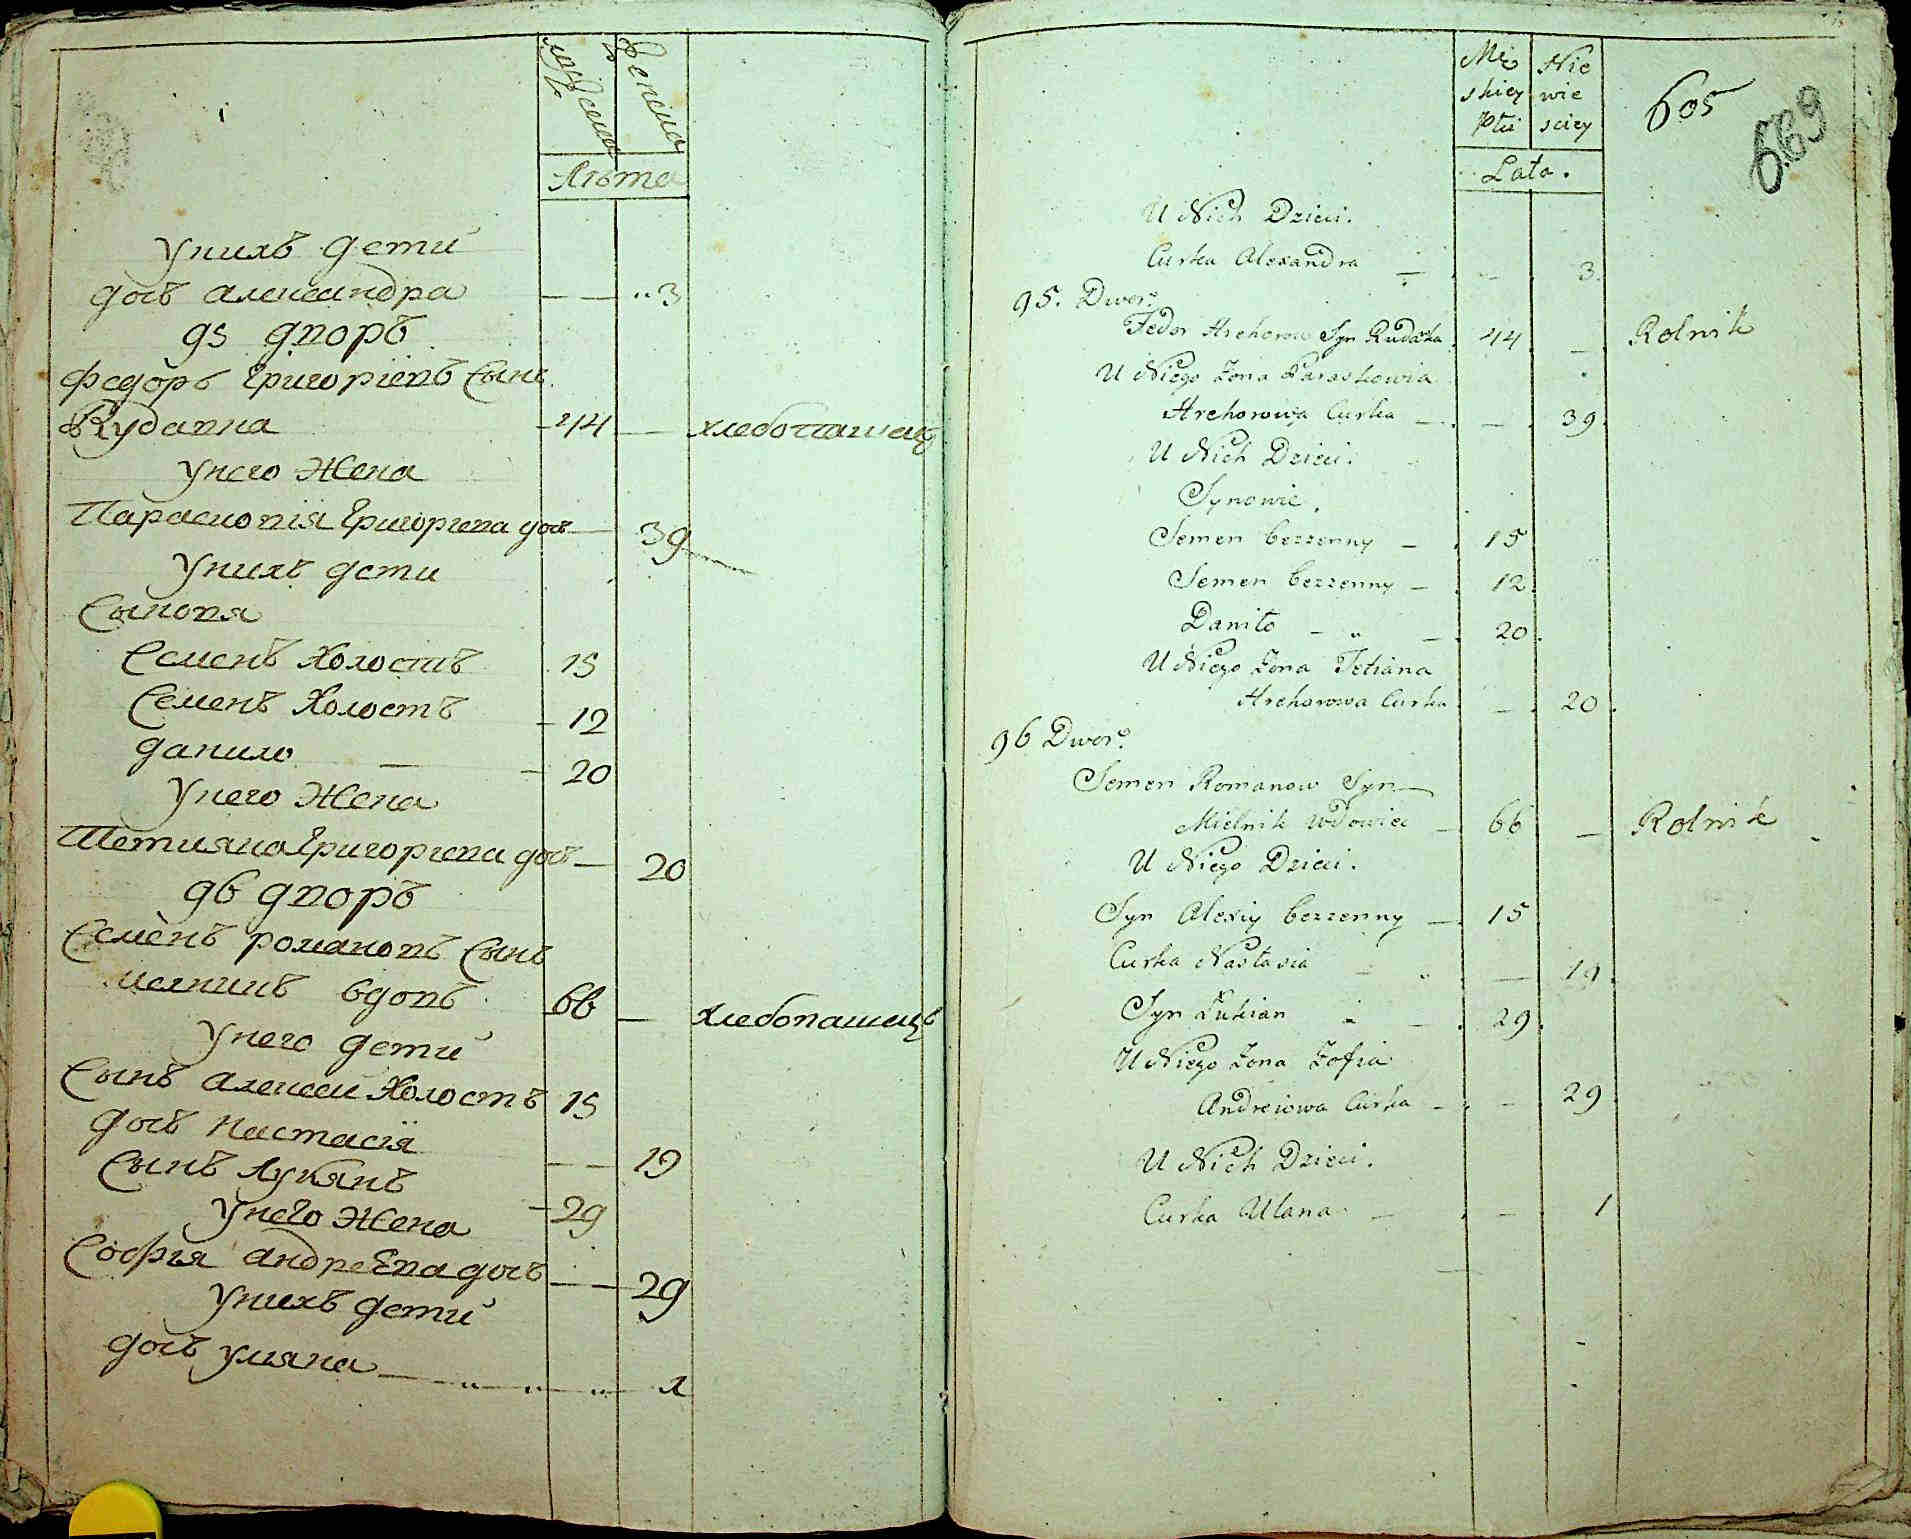 мужеска
женска
Лѣта
Унихъ дети
дочь александра — — 3
95 дворъ
Федоръ Григориевъ Сынъ
Рудавка 44 — хлебопашецъ
Унего Жена
Парасковия Григориева дочь — 39
Унихъ дети
Сыновя
Семенъ Холостъ 15
Семенъ Холостъ 12
данило — 20
Унего Жена
Тетияна Григориева дочь — 20
96 дворъ
Семенъ романовъ Сынъ
мелникъ вдовъ 66 — хлебопашецъ
Унего дети
Сынъ алексей Холостъ 15
дочь настасия — — 19
Сынъ Лукянъ — 29
Унего Жена
София андреева дочь — — 29
Унихъ дети
дочь уляна — 1
Mę Nie
skiey wie
Płci sciey
Lata.
605
669
U Nich Dzieci.
Curka Alexandra — — 3.
95. Dwor.
Fedor Hrehorow Syn Rudawka 44 — Rolnik
U Niego Zona Paraskowia
Hrehorowa Curka — — 39
U Nich Dzieci.
Synowie.
Semen bezzenny — 15
Semen bezzenny — 12
Daniło — „ — 20
U Niego Zona Tetiana
Hrehorowa Curka — 20
96 Dwor.
Semen Romanow Syn —
Mielnik Wdowiec — 66 — Rolnik
U Niego Dzieci.
Syn Alexiy bezzenny — 15
Curka Nastasia — „ — 19
Syn Łukian — — 29
U Niego Zona Zofia
Andreiowa Curka — — 29
U Nich Dzieci.
Curka Ulana — — 1